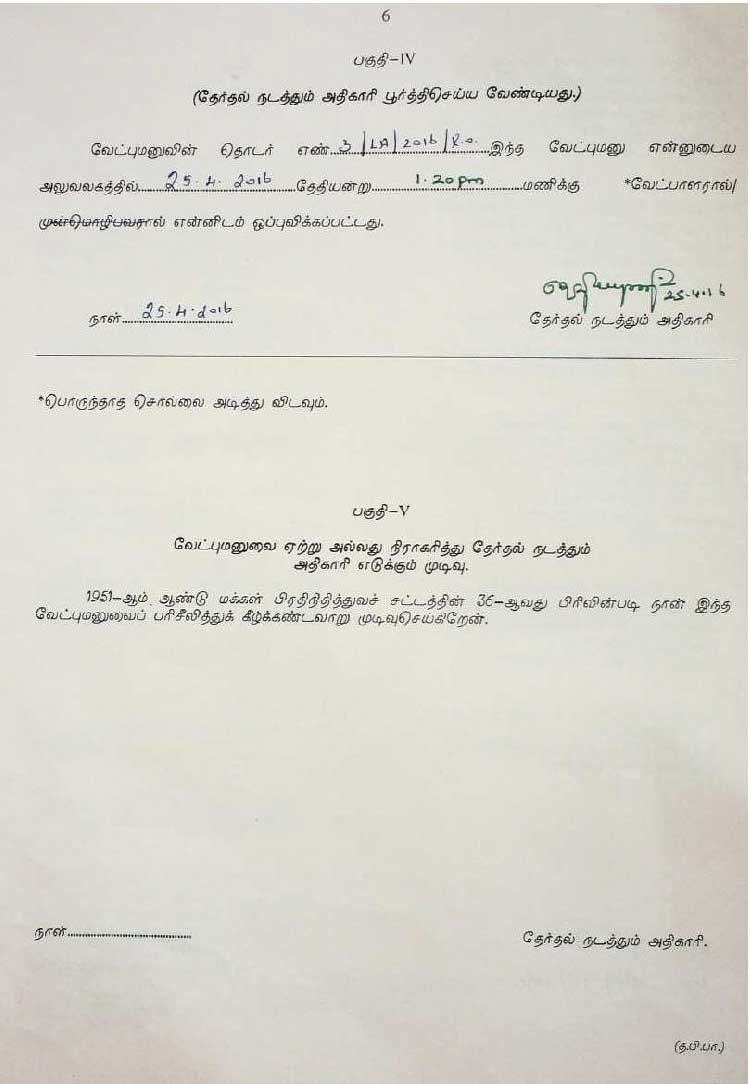 6
பகுதி-IV
(தேர்தல் நடத்தும் அதிகாரி பூர்த்திசெய்ய வேண்டியது.)
வேட்புமனுவின் தொடர் எண். 3/LA/2016/R.O. இந்த வேட்புமனு என்னுடைய
அலுவலகத்தில் 25.4.2016 தேதியன்று 1.20pm மணிக்கு *வேட்பாளரால்/
முன்மொழிபவரால் என்னிடம் ஒப்புவிக்கப்பட்டது.
25.4.16
நாள் 25.4.2016
தேர்தல் நடத்தும் அதிகாரி
*பொருந்தாத சொல்லை அடித்து விடவும்.
பகுதி-V
வேட்புமனுவை ஏற்று அல்லது நிராகரித்து தேர்தல் நடத்தும்
அதிகாரி எடுக்கும் முடிவு.
1951-ஆம் ஆண்டு மக்கள் பிரதிநிதித்துவச் சட்டத்தின் 36-ஆவது பிரிவின்படி நான் இந்த
வேட்புமனுவைப் பரிசீலித்துக் கீழ்க்கண்டவாறு முடிவுசெய்கிறேன்.
நாள்
தேர்தல் நடத்தும் அதிகாரி.
(த.பி.பா.)